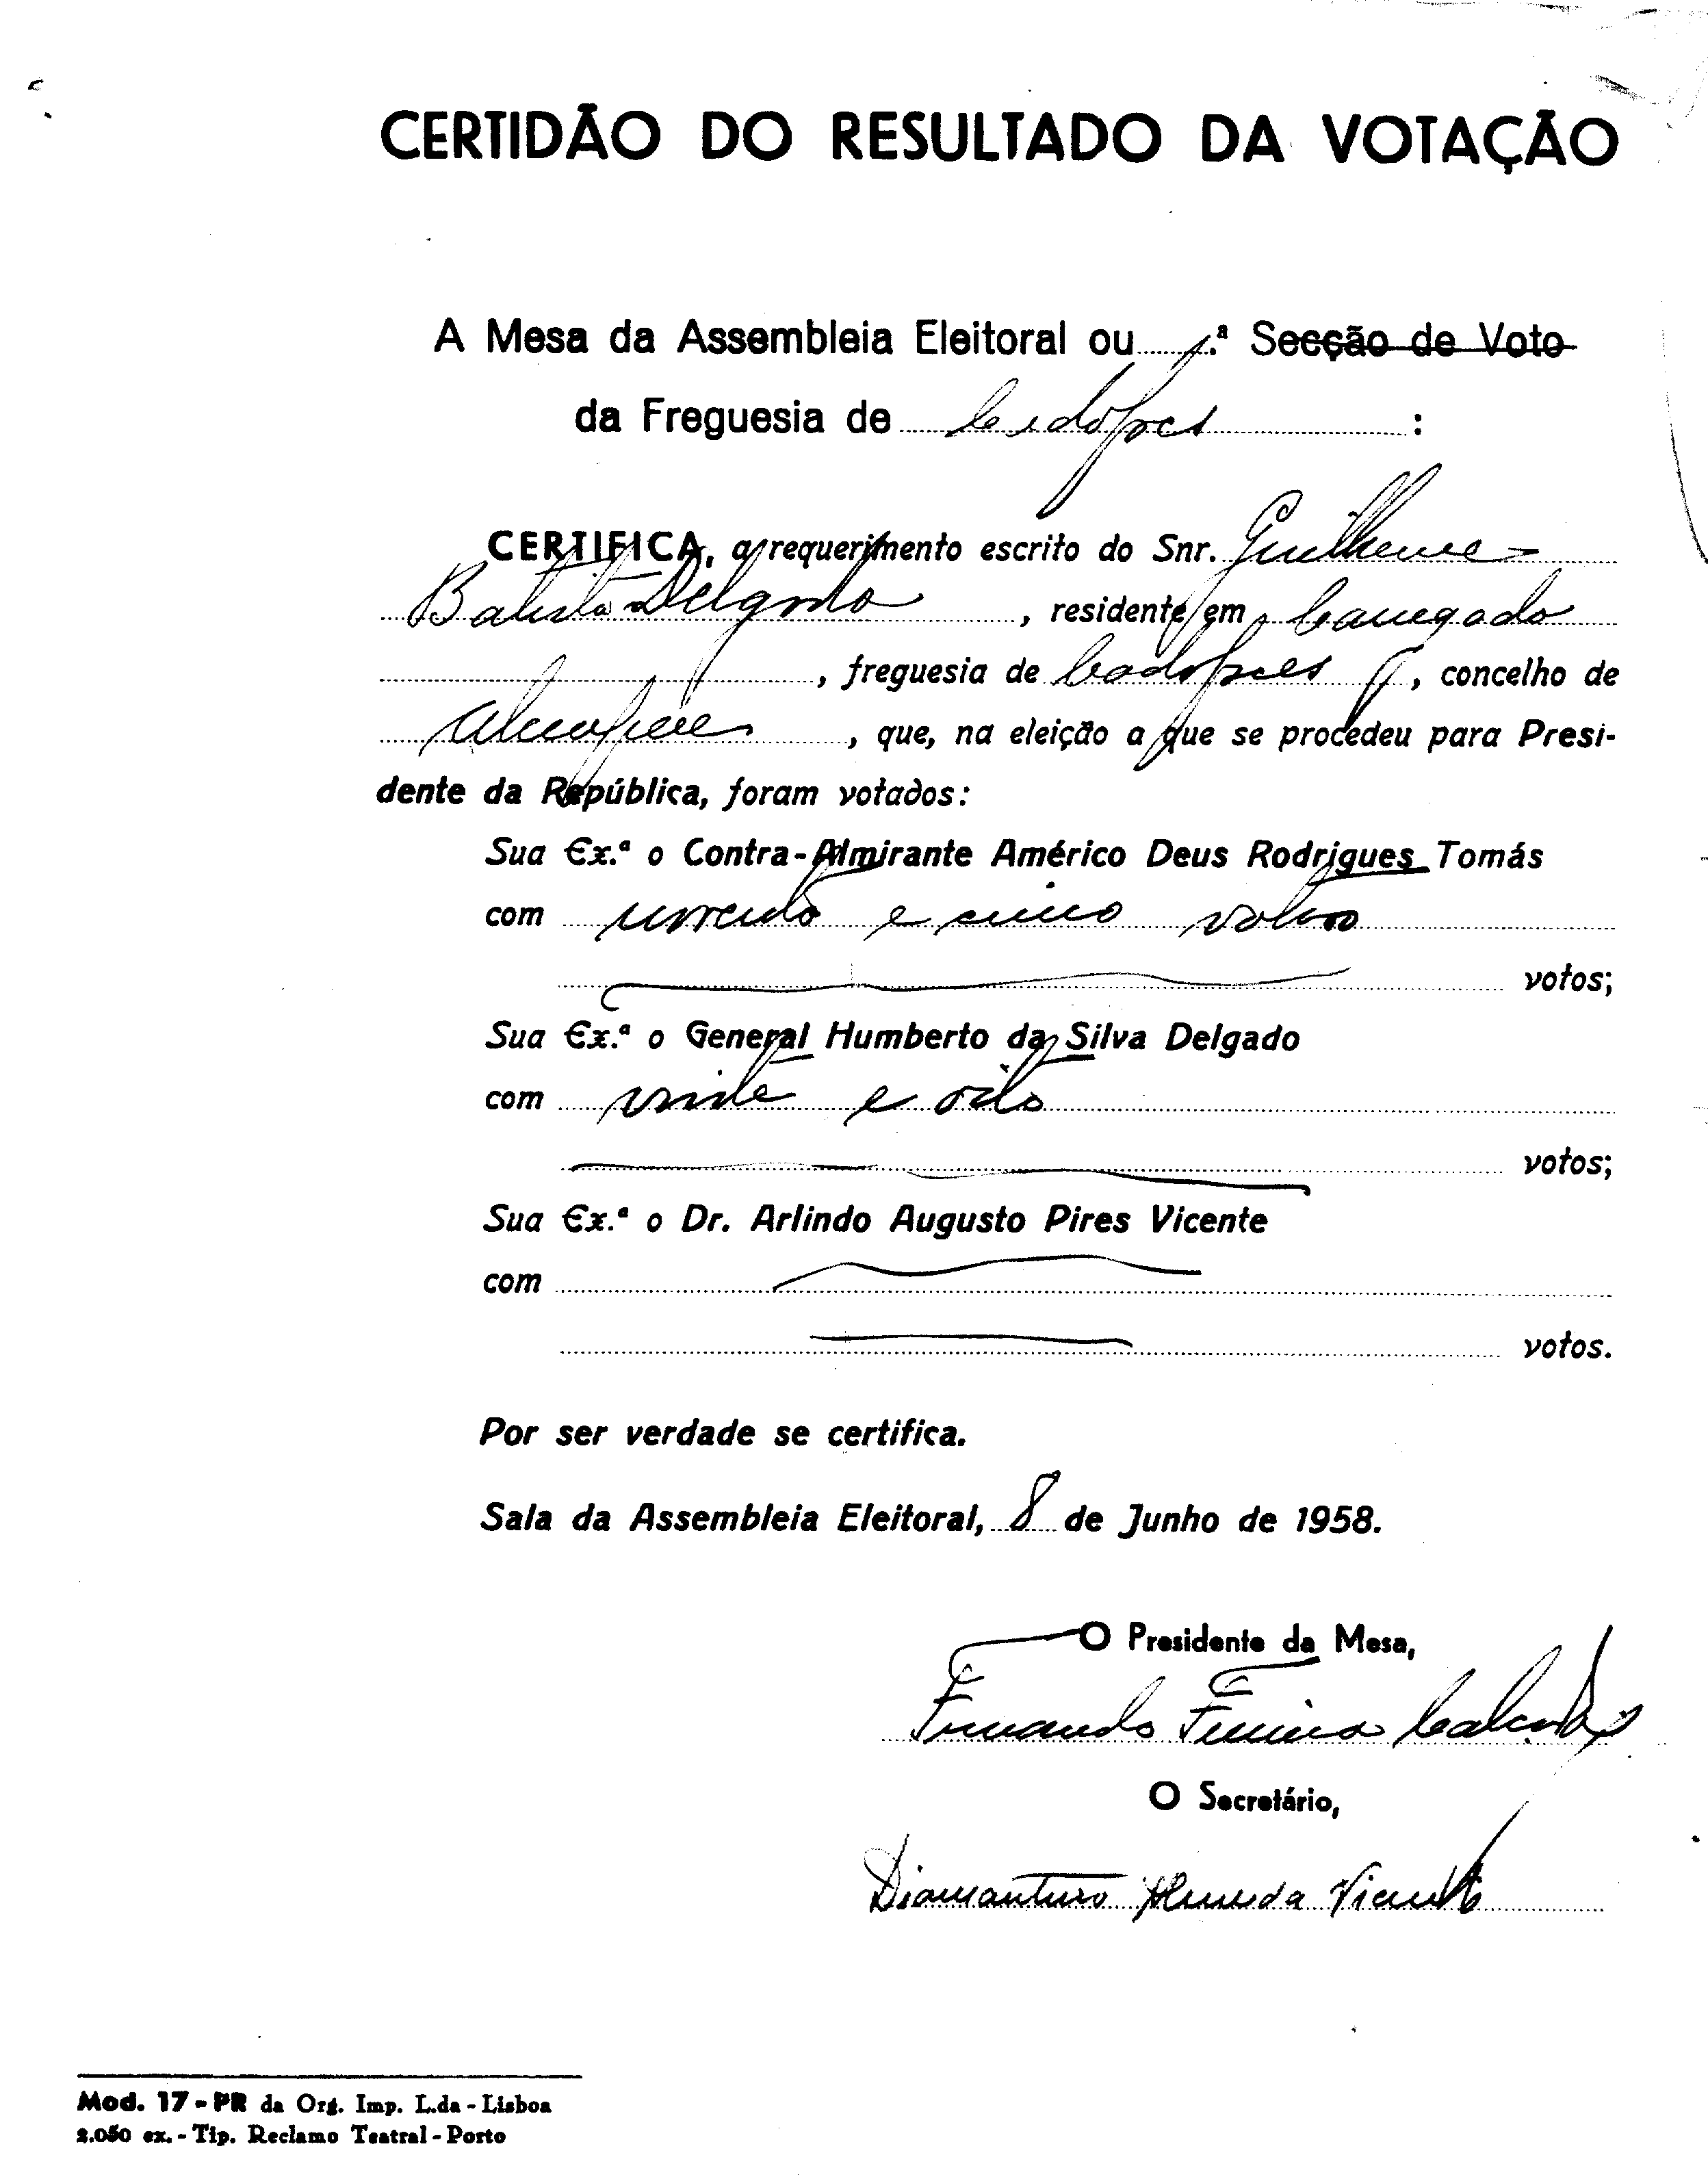 CERTIDÃO DO RESULTADO DA VOTAÇÃO
A Mesa da Assembleia Eleitoral ou .ª Secção de Voto
da Freguesia de :
CERTIFICA, a requerimento escrito do Snr. Guilherme
Batista Delgado, residente em Carregado
, freguesia de Cadafaes, concelho de
Alenquer, que, na eleição a que se procedeu para Presi-
dente da República, foram votados:
Sua Ex.ª o Contra-Almirante Américo Deus Rodrigues Tomás
com e cinco votos
votos;
Sua Ex.ª o General Humberto da Silva Delgado
com vinte e oito
votos;
Sua Ex.ª o Dr. Arlindo Augusto Pires Vicente
com
votos.
Por ser verdade se certifica.
Sala da Assembleia Eleitoral, 8 de Junho de 1958.
O Presidente da Mesa,
Fernando Ferreira
O Secretário,
Diamantino Almeida Vicente
Mod. 17 - PR da Org. Imp. L.da - Lisboa
2.050 ex. - Tip. Reclamo Teatral - Porto